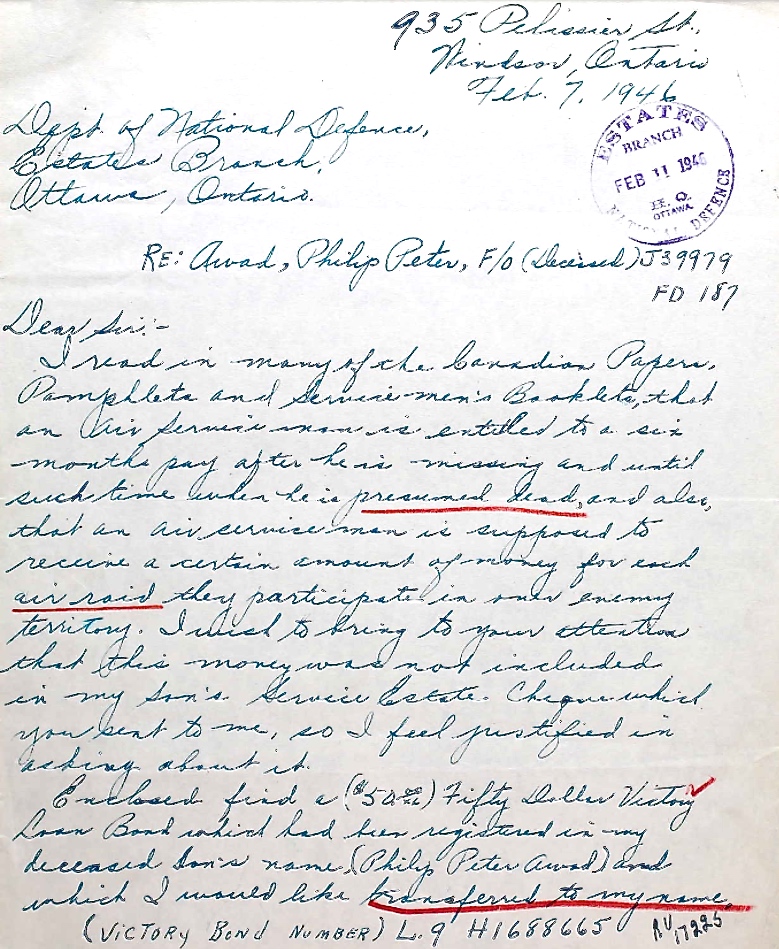 935 Pelissier St.,
Windsor, Ontario
Feb. 7, 1946
Dept. of National Defence,
Estates Branch,
Ottawa, Ontario.
ESTATES
BRANCH
FEB 11 1946
H.Q.
OTTAWA
NATIONAL DEFENCE
RE: Awad, Philip Peter, F/O (Deceised) J39979
FD 187
Dear Sir:-
I read in many of the Canadian Papers,
Pamphlets and Service-men's Booklets, that
an Air Service man is entitled to a six
months pay after he is missing and until
such time when he is presumed dead, and also,
that an air service man is supposed to
receive a certain amount of money for each
air raid they participate in over enemy
territory. I wish to bring to your attention
that this money was not included
in my son's Service Estate. Cheque which
you sent to me, so I feel justified in
asking about it.
Enclosed find a ($50.00) Fifty Dollar Victory
Loan Bond which had been registered in my
deceased Son's name, (Philip Peter Awad) and
which I would like transferred to my name.
(VICTORY BOND NUMBER) L.9 H1688665